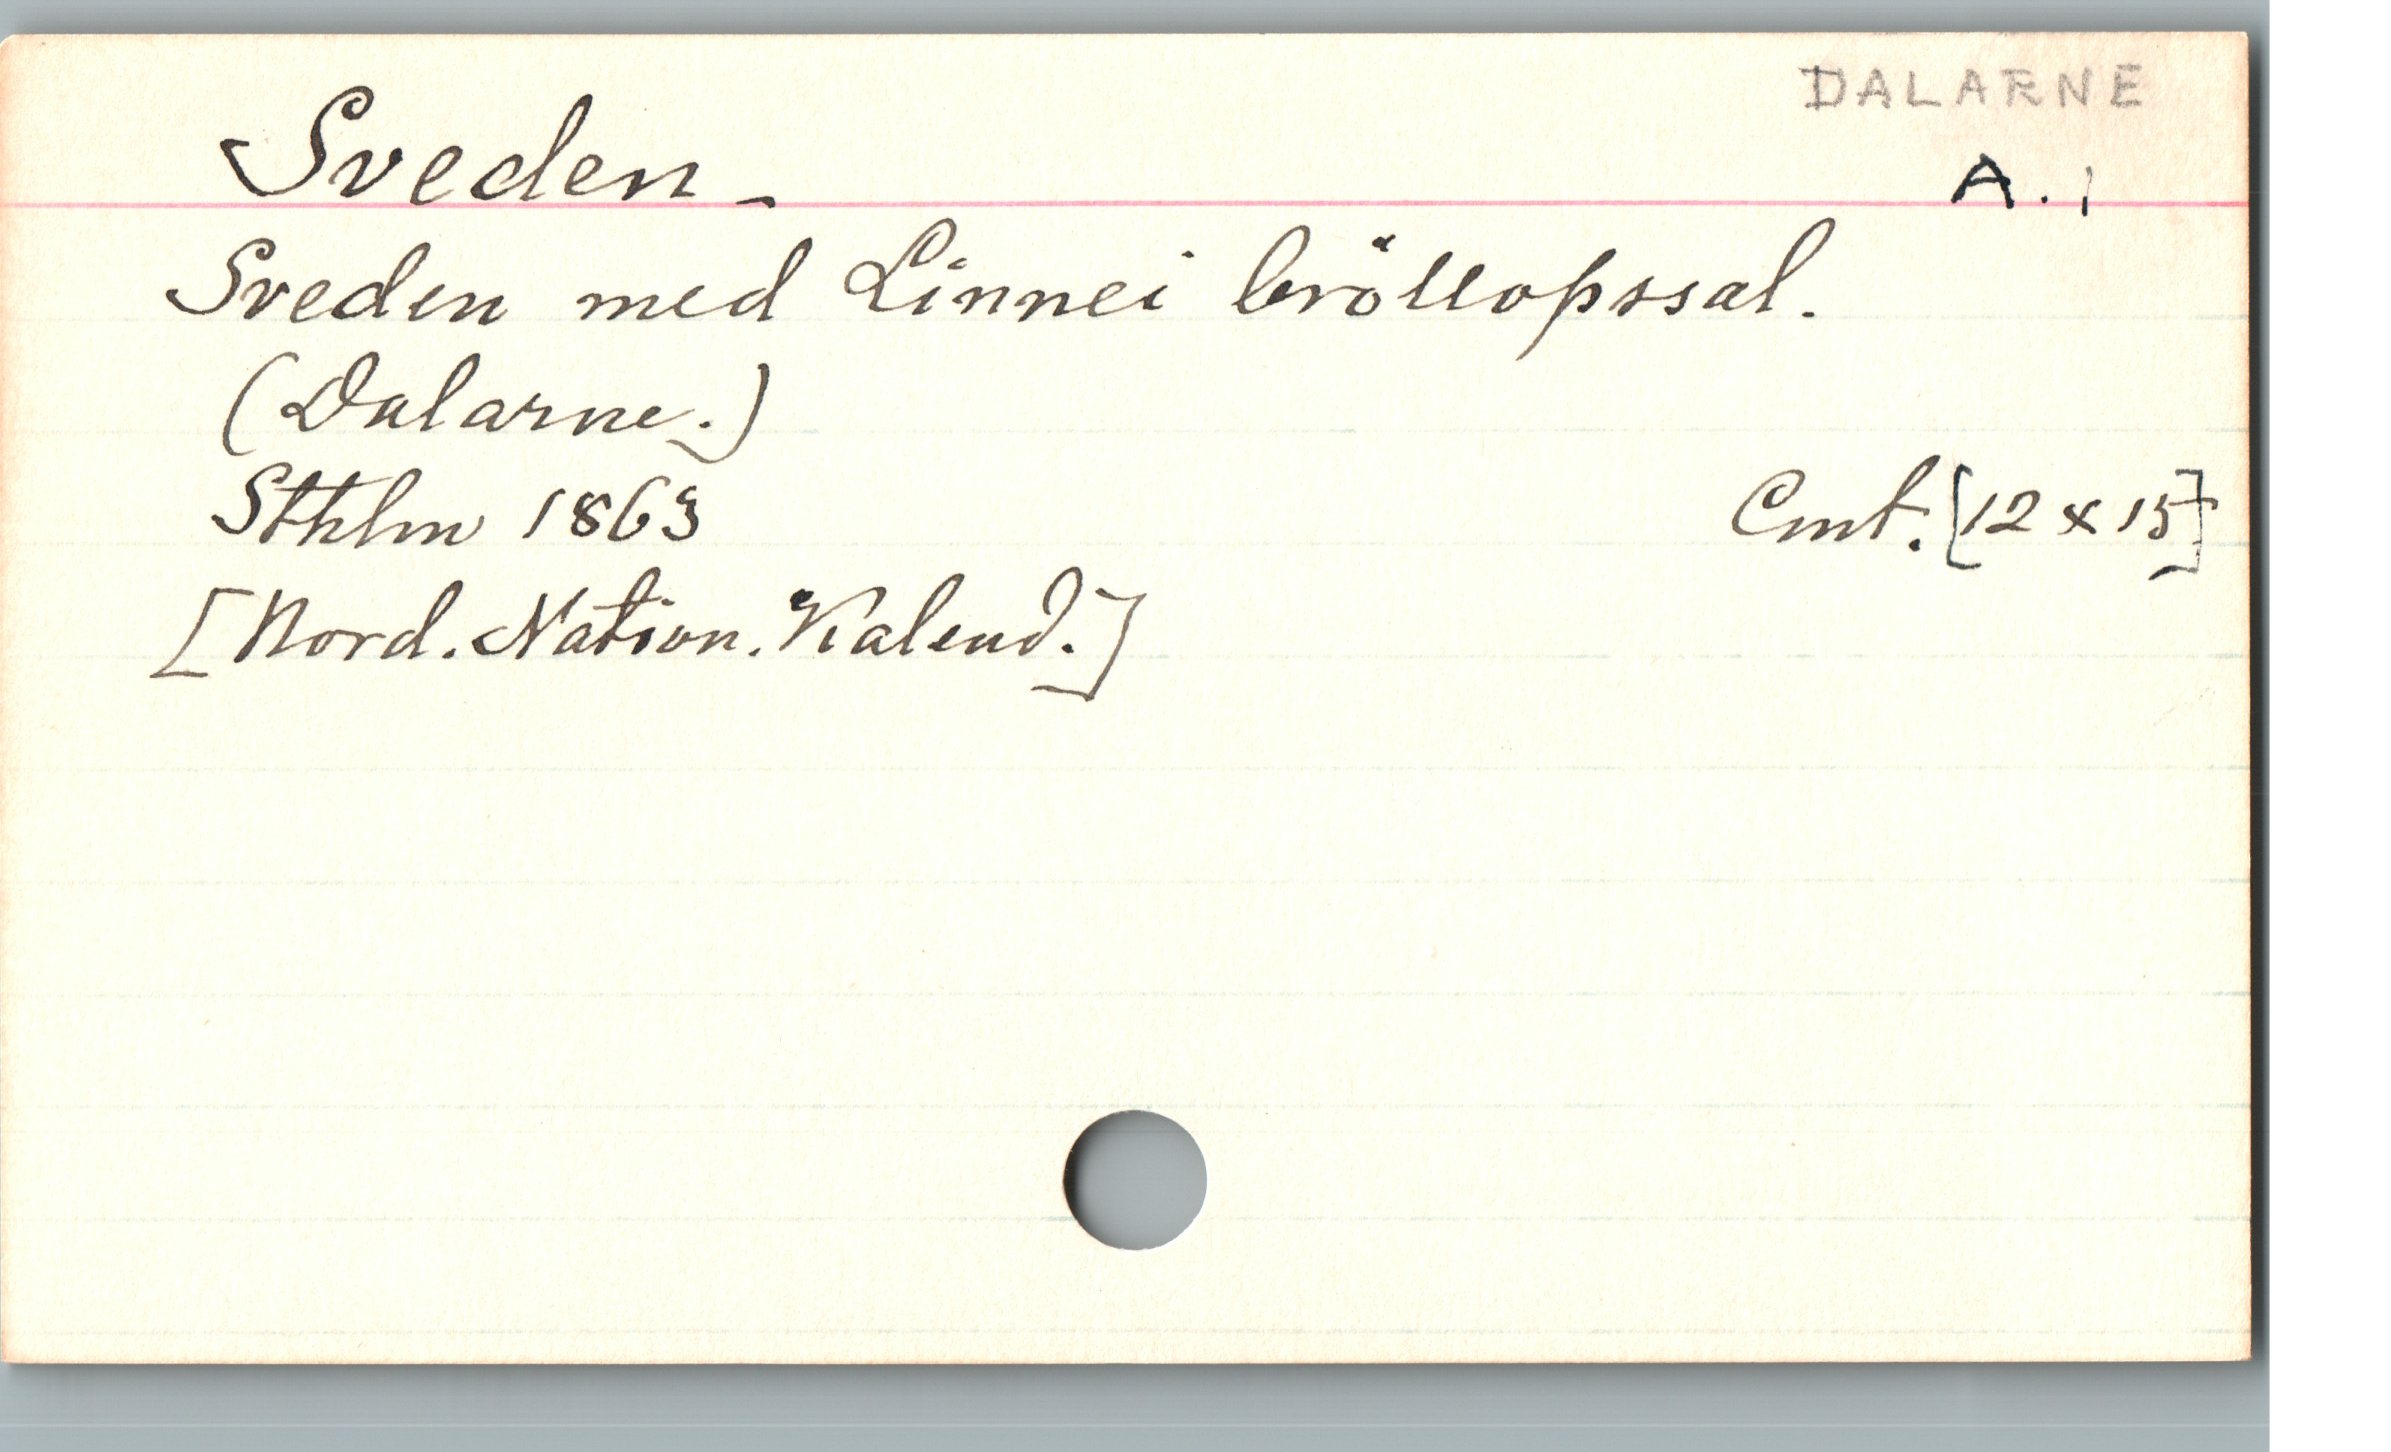 DALARNE
Sveden
A. 1
Sveden med Linnei bröllopssal.
(Dalarne.)
Sthlm 1863
Cmt. [12 x 15]
[Nord. Nation. Kalend.]